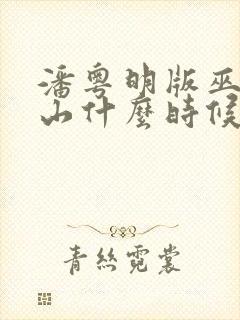 潘粤明版巫
山什麼時候
青絲霓裳